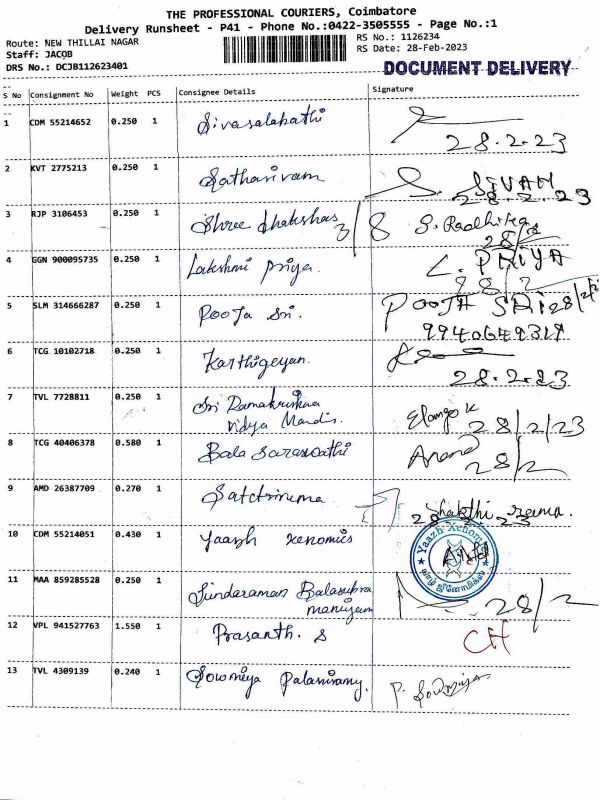 THE PROFESSIONAL COURIERS, Coimbatore
Delivery Runsheet - P41 - Phone No.:0422-3505555 - Page No.:1
Route: NEW THILLAI NAGAR
RS No.: 1126234
Staff: JACOB
RS Date: 28-Feb-2023
DRS No.: DCJB112623401
DOCUMENT DELIVERY
S No Consignment No Weight PCS Consignee Details Signature
1 CDM 55214652 0.250 1 Sivasalapathi
28.2.23
2 KVT 2775213 0.250 1 Satharivam S. SIVAM
28.2.23
3 RJP 3106453 0.250 1 Shree dhakshas 3/8 S. Radhika
28/2
4 GGN 900095735 0.250 1 Lakshmi Priya. L. PRIYA
28/2
5 SLM 314666287 0.250 1 Pooja Sri. POOJA SRI 28/2/23
9940649319
6 TCG 10102718 0.250 1 Karthigeyan.
28.2.23
7 TVL 7728811 0.250 1 Sri Ramakrishna
vidya Mandir. Elango K 28/2/23
8 TCG 40406378 0.580 1 Bala Saraswathi Anand 28/2
9 AMD 26387709 0.270 1 Shakthi rama.
28.2.23
10 CDM 55214051 0.430 1 Yaazh xenomics
Yaazh Xenom
யாழ் ஜீனோமிக்ஸ்
11 MAA 859285528 0.250 1 Sundaraman Balasubra
maniyam 28/2
12 VPL 941527763 1.550 1 Prasanth. S CH
13 TVL 4309139 0.240 1 Sowmiya Palanisamy. P. Sowmiya